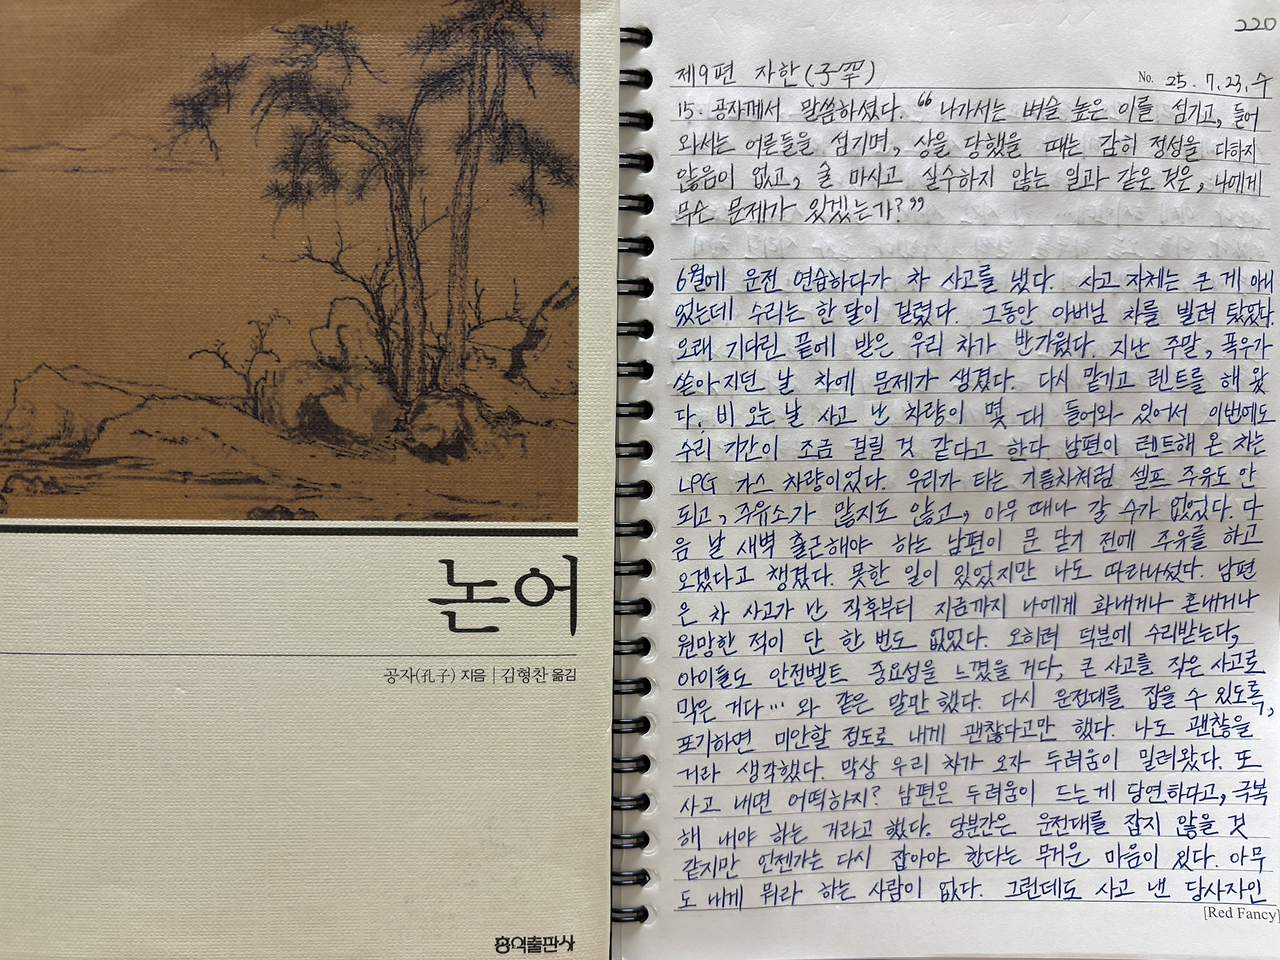 논어
공자(孔子) 지음 | 김형찬 옮김
홍익출판사
220
제9편 자한(子罕)
No. 25. 7. 23. 수
15. 공자께서 말씀하셨다. “나가서는 벼슬 높은 이를 섬기고, 들어
와서는 어른들을 섬기며, 상을 당했을 때는 감히 정성을 다하지
않음이 없고, 술 마시고 실수하지 않는 일과 같은 것은, 나에게
무슨 문제가 있겠는가?”
6월에 운전 연습하다가 차 사고를 냈다. 사고 자체는 큰 게 아니
었는데 수리는 한 달이 걸렸다. 그동안 아버님 차를 빌려 탔었다.
오래 기다린 끝에 받은 우리 차가 반가웠다. 지난 주말, 폭우가
쏟아지던 날 차에 문제가 생겼다. 다시 맡기고 렌트를 해 왔
다. 비 오는 날 사고 난 차량이 몇 대 들어와 있어서 이번에도
수리 기간이 조금 걸릴 것 같다고 한다. 남편이 렌트해 온 차는
LPG 가스 차량이었다. 우리가 타는 기름차처럼 셀프 주유도 안
되고, 주유소가 많지도 않고, 아무 때나 갈 수가 없었다. 다
음 날 새벽 출근해야 하는 남편이 문 닫기 전에 주유를 하고
오겠다고 챙겼다. 못한 일이 있었지만 나도 따라나섰다. 남편
은 차 사고가 난 직후부터 지금까지 나에게 화내거나 혼내거나
원망한 적이 단 한 번도 없었다. 오히려 덕분에 수리받는다,
아이들도 안전벨트 중요성을 느꼈을 거다, 큰 사고를 작은 사고로
막은 거다… 와 같은 말만 했다. 다시 운전대를 잡을 수 있도록,
포기하면 미안할 정도로 내게 괜찮다고만 했다. 나도 괜찮을
거라 생각했다. 막상 우리 차가 오자 두려움이 밀려왔다. 또
사고 내면 어떡하지? 남편은 두려움이 드는 게 당연하다고, 극복
해 내야 하는 거라고 했다. 당분간은 운전대를 잡지 않을 것
같지만 언젠가는 다시 잡아야 한다는 무거운 마음이 있다. 아무
도 내게 뭐라 하는 사람이 없다. 그런데도 사고 낸 당사자인
[Red Fancy]